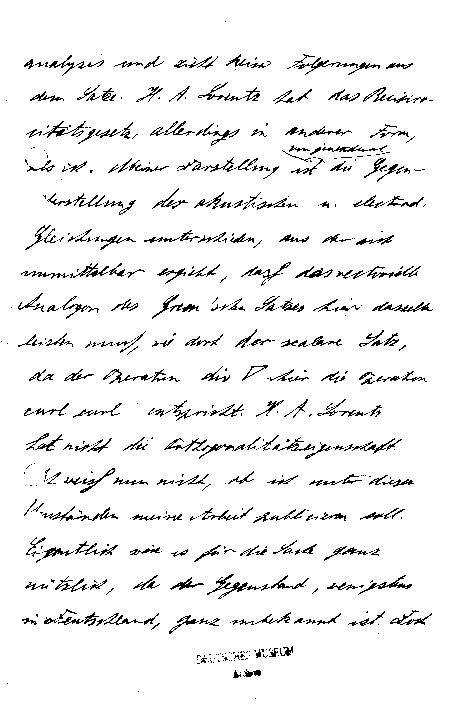 analysis und zieht keine Folgerungen aus
dem Satze. H. A. Lorentz hat das Rezipro-
zitätsgesetz, allerdings in anderer Form,
als ich. Meiner Darstellung ist die Gegen-
überstellung der akustischen u. electrod.
Gleichungen unterschieden, aus der sich
unmittelbar ergibt, daß das vectorielle
Analogon des Green'schen Satzes hier dasselbe
leisten muß, wie dort der scalare Satz,
da der Operation div ∇ hier die Operation
curl curl entspricht. H. A. Lorentz
hat nicht die Orthogonalitätseigenschaft.
Ich weiß nun nicht, ob ich unter diesen
Umständen meine Arbeit publicieren soll.
Eigentlich wäre es für die Sache ganz
nützlich, da der Gegenstand, wenigstens
in Deutschland, ganz unbekannt ist. Doch
DEUTSCHES MUSEUM